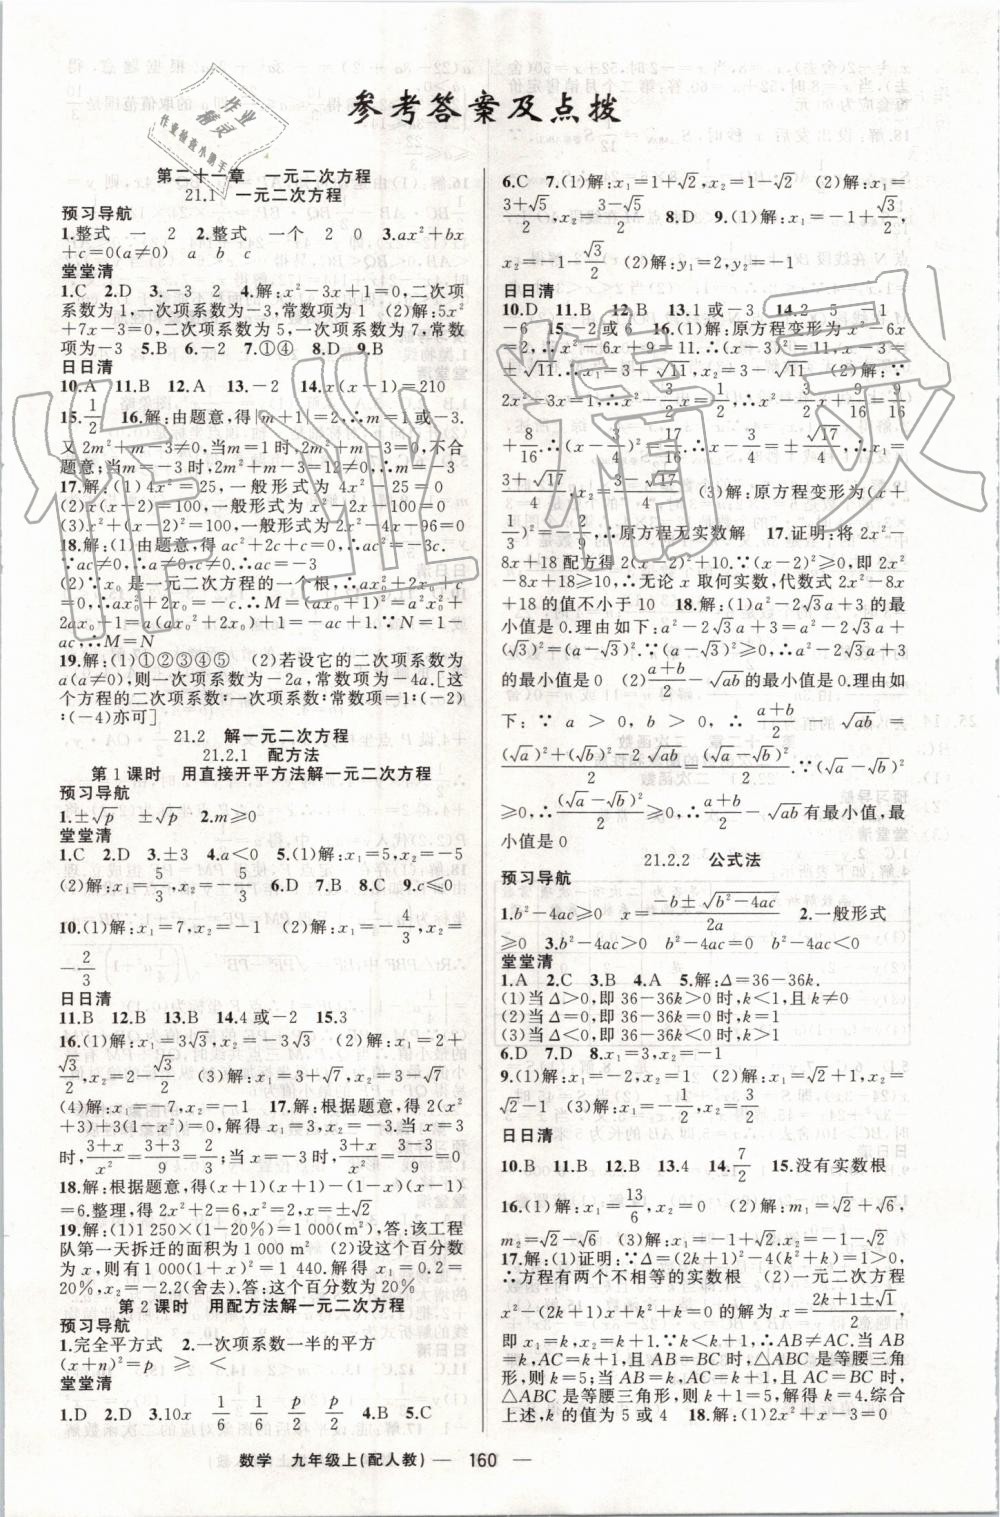 参考答案及点拨
第二十一章 一元二次方程
21.1 一元二次方程
预习导航
1.整式 一 2 2.整式 一个 2 0 3.ax²+bx
+c=0(a≠0) a b c
堂堂清
1.C 2.D 3.-3 2 4.解:x²-3x+1=0,二次项
系数为1,一次项系数为-3,常数项为1 (2)解:5x²
+7x-3=0,二次项系数为5,一次项系数为7,常数
项为-3 5.B 6.-2 7.①④ 8.D 9.B
日日清
10.A 11.B 12.A 13.-2 14.x(x-1)=210
15.1/2 16.解:由题意,得|m+1|=2,∴m=1或-3.
又2m²+m-3≠0,当m=1时,2m²+m-3=0,不合
题意;当m=-3时,2m²+m-3≠0,∴m=-3
17.解:(1)4x²=25,一般形式为4x²-25=0
(2)x(x-2)=100,一般形式为x²-2x-100=0
(3)x²+(x-2)²=10²,一般形式为x²-2x-48=0
18.解:(1)由题意,得ac²+2c+c=0,∴ac²=-3c.
∵ac≠0,∴a≠0,c≠0,∴ac=-3
(2)∵x₀是一元二次方程的一个根,∴ax₀²+2x₀+c
=0,∴ax₀²+2x₀=-c.∴M=(ax₀+1)²=a²x₀²+
2ax₀+1=a(ax₀²+2x₀)+1=-ac+1.∵N=1-
ac,∴M=N
19.解:(1)①②③④⑤ (2)若设它的二次项系数为
a(a≠0),则一次项系数为-2a,常数项为-4a.[这
个方程的二次项系数∶一次项系数∶常数项=1∶(-2)
∶(-4)亦可]
21.2 解一元二次方程
21.2.1 配方法
第1课时 用直接开平方法解一元二次方程
预习导航
1.±√p ±√p 2.m≥0
堂堂清
1.C 2.D 3.±3 4.a<0 5.(1)解:x₁=5,x₂=-5
(2)解:x₁=5/3,x₂=-5/3 6.D 7.B 8.C 9.c≤0
10.(1)解:x₁=7,x₂=-1 (2)解:x₁=-4/3,x₂=
-2/3
日日清
11.B 12.D 13.B 14.4或-2 15.3
16.(1)解:x₁=3√3,x₂=-3√3 (2)解:x₁=2+
√3/2,x₂=2-√3/2 (3)解:x₁=3+√7,x₂=3-√7
(4)解:x₁=-7,x₂=-1 17.解:根据题意,得2(x²
+3)+3(1-x²)=0,解得x=±3.当x=3
时,(3+x)/x²=(3+3)/9=2/3;当x=-3时,(3+x)/x²=(3-3)/9=0
18.解:根据题意,得(x+1)(x+1)-(1-x)(x-1)
=6.整理,得2x²+2=6,x²=2,x=±√2
19.解:(1)1 250×(1-20%)=1 000(m²),答:该工程
队第一天拆迁的面积为1 000 m² (2)设这个百分数
为x,则有1 000(1+x)²=1 440.解得x₁=0.2=
20%,x₂=-2.2(舍去).答:这个百分数为20%
第2课时 用配方法解一元二次方程
预习导航
1.完全平方式 2.一次项系数一半的平方
(x+n)²=p ≥ <
堂堂清
1.D 2.D 3.10x 1/6 1/6 p/2 p/2 4.B 5.C
6.C 7.(1)解:x₁=1+√2,x₂=1-√2 (2)解:x₁=
(3+√5)/2,x₂=(3-√5)/2 8.D 9.(1)解:x₁=-1+√3/2,
x₂=-1-√3/2 (2)解:y₁=2,y₂=-1
日日清
10.D 11.B 12.B 13.1或-3 14.2 -5 -1
-6 15.-2或6 16.(1)解:原方程变形为x²-6x
=2,∴x²-6x+9=11.∴(x-3)²=11,∴x-3=
±√11.∴x₁=3+√11,x₂=3-√11 (2)解:∵
2x²-3x=1,∴x²-3/2x=1/2,∴x²-3/2x+9/16=9/16
+8/16.∴(x-3/4)²=17/16.∴x-3/4=±√17/4,∴x₁=
(3+√17)/4,x₂=(3-√17)/4 (3)解:原方程变形为(x+
1/3)²=-2/9,∴原方程无实数解 17.证明:将2x²-
8x+18配方得2(x-2)²+10.∵(x-2)²≥0,即2x²-
8x+18≥10.∴无论x取何实数,代数式2x²-8x
+18的值不小于10 18.解:(1)a²-2√3a+3的最
小值是0.理由如下:a²-2√3a+3=a²-2√3a+
(√3)²=(a-√3)².∵(a-√3)²≥0,∴a²-2√3a+3
的最小值是0 (2)(a+b)/2-√ab的最小值是0.理由如
下:∵a>0,b>0,∴(a+b)/2-√ab=
((√a)²+(√b)²-2√ab)/2=(√a-√b)²/2.∵(√a-√b)²
≥0,∴(√a-√b)²/2≥0,∴(a+b)/2-√ab有最小值,最
小值是0
21.2.2 公式法
预习导航
1.b²-4ac≥0 x=(-b±√(b²-4ac))/2a 2.一般形式
≥0 3.b²-4ac>0 b²-4ac=0 b²-4ac<0
堂堂清
1.A 2.C 3.B 4.A 5.解:Δ=36-36k.
(1)当Δ>0,即36-36k>0时,k<1,且k≠0
(2)当Δ=0,即36-36k=0时,k=1
(3)当Δ<0,即36-36k<0时,k>1
6.D 7.D 8.x₁=3,x₂=-1
9.(1)解:x₁=-2,x₂=1 (2)解:x₁=√2+1,x₂=
√2-1 (3)解:x₁=-√2/2,x₂=√2/2
日日清
10.B 11.B 12.B 13.4 14.7/2 15.没有实数根
16.(1)解:x₁=13/6,x₂=0 (2)解:m₁=√2+√6,
m₂=√2-√6 (3)解:x₁=-4,x₂=1
17.解:(1)证明:∵Δ=(2k+1)²-4(k²+k)=1>0,
∴方程有两个不相等的实数根 (2)一元二次方程
x²-(2k+1)x+k²+k=0的解为x=(2k+1±√1)/2,
即x₁=k,x₂=k+1.∵k<k+1,∴AB≠AC.当AB
=k,AC=k+1,且AB=BC时,△ABC是等腰三角
形,则k=5;当AB=k,AC=k+1,且AC=BC时,
△ABC是等腰三角形,则k+1=5,解得k=4.综合
上述,k的值为5或4 18.解:2x²+2x+3=0
数学 九年级上(配人教) — 160 —
作业精灵
作业检查小助手
作业精灵